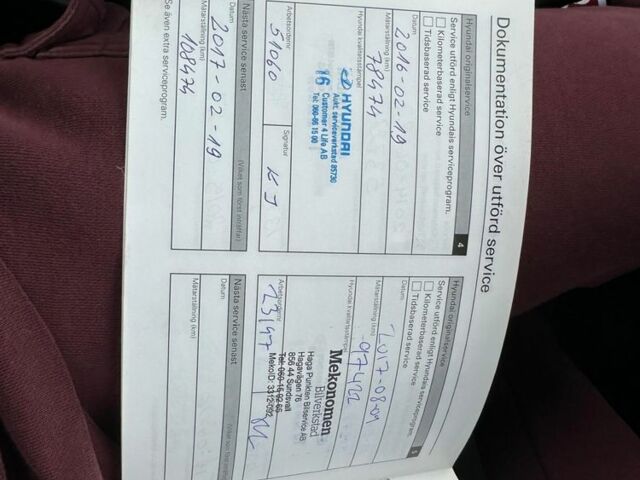 Dokumentation över utförd service
Hyundai originalservice
4
Service utförd enligt Hyundais serviceprogram.
Kilometerbaserad service
Tidsbaserad service
Datum
2016-02-19
Mätarställning (km)
78474
Hyundai kvalitetsstämpel
HYUNDAI
Aukt. serviceverkstad 85730
Customer 4 Life AB
16
Tel: 060-66 15 00
Arbetsordernr
51060
Signatur
KJ
Nästa service senast
(Vilket som först inträffar)
Datum
2017-02-19
Mätarställning (km)
108474
Se även extra serviceprogram.
Hyundai originalservice
5
Service utförd enligt Hyundais serviceprogram.
Kilometerbaserad service
Tidsbaserad service
Datum
2017-08-01
Mätarställning (km)
97422
Hyundai kvalitetsstämpel
Mekonomen
Bilverkstad
Haga Punkten Bilservice AB
Hagavägen 76
856 44 Sundsvall
Arbetsordernr
23147
Nästa service senast
Datum
Mätarställning (km)